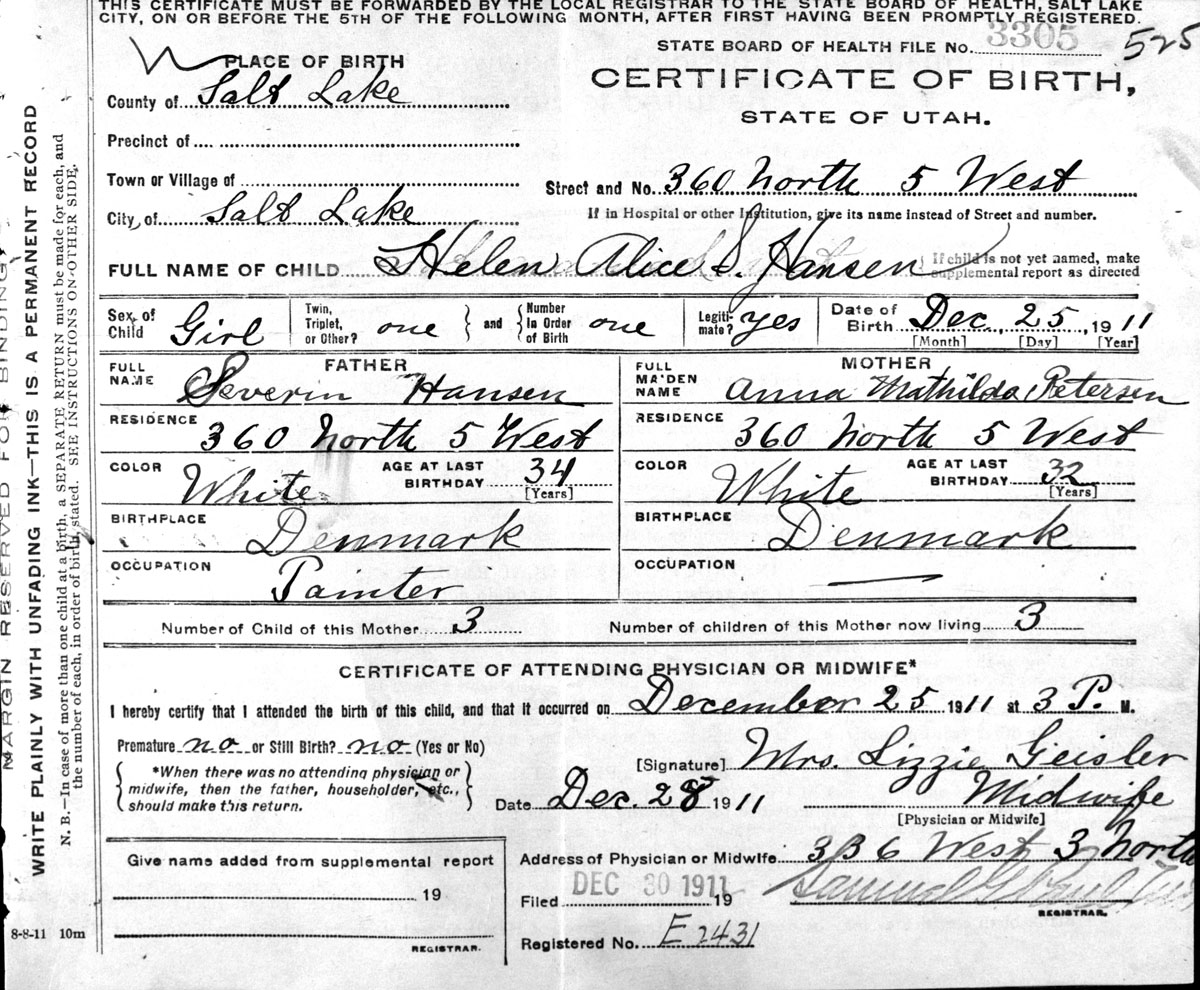 THIS CERTIFICATE MUST BE FORWARDED BY THE LOCAL REGISTRAR TO THE STATE BOARD OF HEALTH, SALT LAKE
CITY, ON OR BEFORE THE 5TH OF THE FOLLOWING MONTH, AFTER FIRST HAVING BEEN PROMPTLY REGISTERED.
STATE BOARD OF HEALTH FILE No. 3305 525
PLACE OF BIRTH
CERTIFICATE OF BIRTH,
County of Salt Lake
STATE OF UTAH.
Precinct of
Town or Village of
Street and No. 360 North 5 West
City of Salt Lake
If in Hospital or other Institution, give its name instead of Street and number.
FULL NAME OF CHILD Helen Alice S. Hansen
If child is not yet named, make
supplemental report as directed
Sex of Child Girl
Twin, Triplet, or Other? one and Number In Order of Birth one
Legiti-mate? yes
Date of Birth Dec. 25, 1911
[Month] [Day] [Year]
FATHER
FULL NAME Severin Hansen
RESIDENCE 360 North 5 West
COLOR White AGE AT LAST BIRTHDAY 34
[Years]
BIRTHPLACE Denmark
OCCUPATION Painter
MOTHER
FULL MAIDEN NAME Anna Mathilda Petersen
RESIDENCE 360 North 5 West
COLOR White AGE AT LAST BIRTHDAY 32
[Years]
BIRTHPLACE Denmark
OCCUPATION —
Number of Child of this Mother 3 Number of children of this Mother now living 3
CERTIFICATE OF ATTENDING PHYSICIAN OR MIDWIFE*
I hereby certify that I attended the birth of this child, and that it occurred on December 25 1911 at 3 P. M.
Premature no or Still Birth? no (Yes or No)
[Signature] Mrs. Lizzie Geisler
*When there was no attending physician or
midwife, then the father, householder, etc.,
should make this return.
Date Dec. 28 1911 Midwife
[Physician or Midwife]
Give name added from supplemental report
19
REGISTRAR.
Address of Physician or Midwife 336 West 3 North
Filed DEC 30 1911 19
Samuel G. Paul
REGISTRAR.
Registered No. E 2431
8-8-11 10m
MARGIN RESERVED FOR BINDING
WRITE PLAINLY WITH UNFADING INK—THIS IS A PERMANENT RECORD
N. B.—In case of more than one child at a birth, a SEPARATE RETURN must be made for each, and
the number of each, in order of birth, stated. SEE INSTRUCTIONS ON OTHER SIDE.